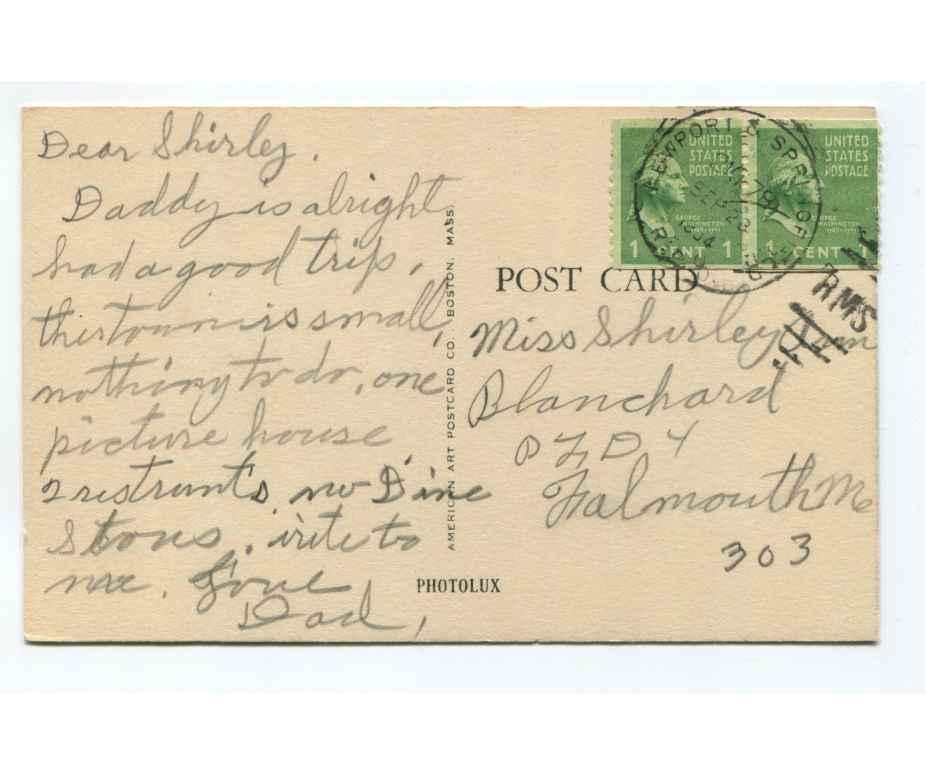 Dear Shirley.
Daddy is alright
had a good trip,
this town is small,
nothing to do, one
picture house
2 restrunts no Dine
Stous. irite to
me. Love
Dad,
AMERICAN ART POSTCARD CO., BOSTON, MASS.
PHOTOLUX
POST CARD
UNITED
STATES
POSTAGE
GEORGE
WASHINGTON
1 CENT 1
UNITED
STATES
POSTAGE
GEORGE
WASHINGTON
1 CENT 1
NEWPORT & SPRI
SEP 2
R.P.O.
RMS
Miss Shirley Ann
Blanchard
Falmouth Me
303